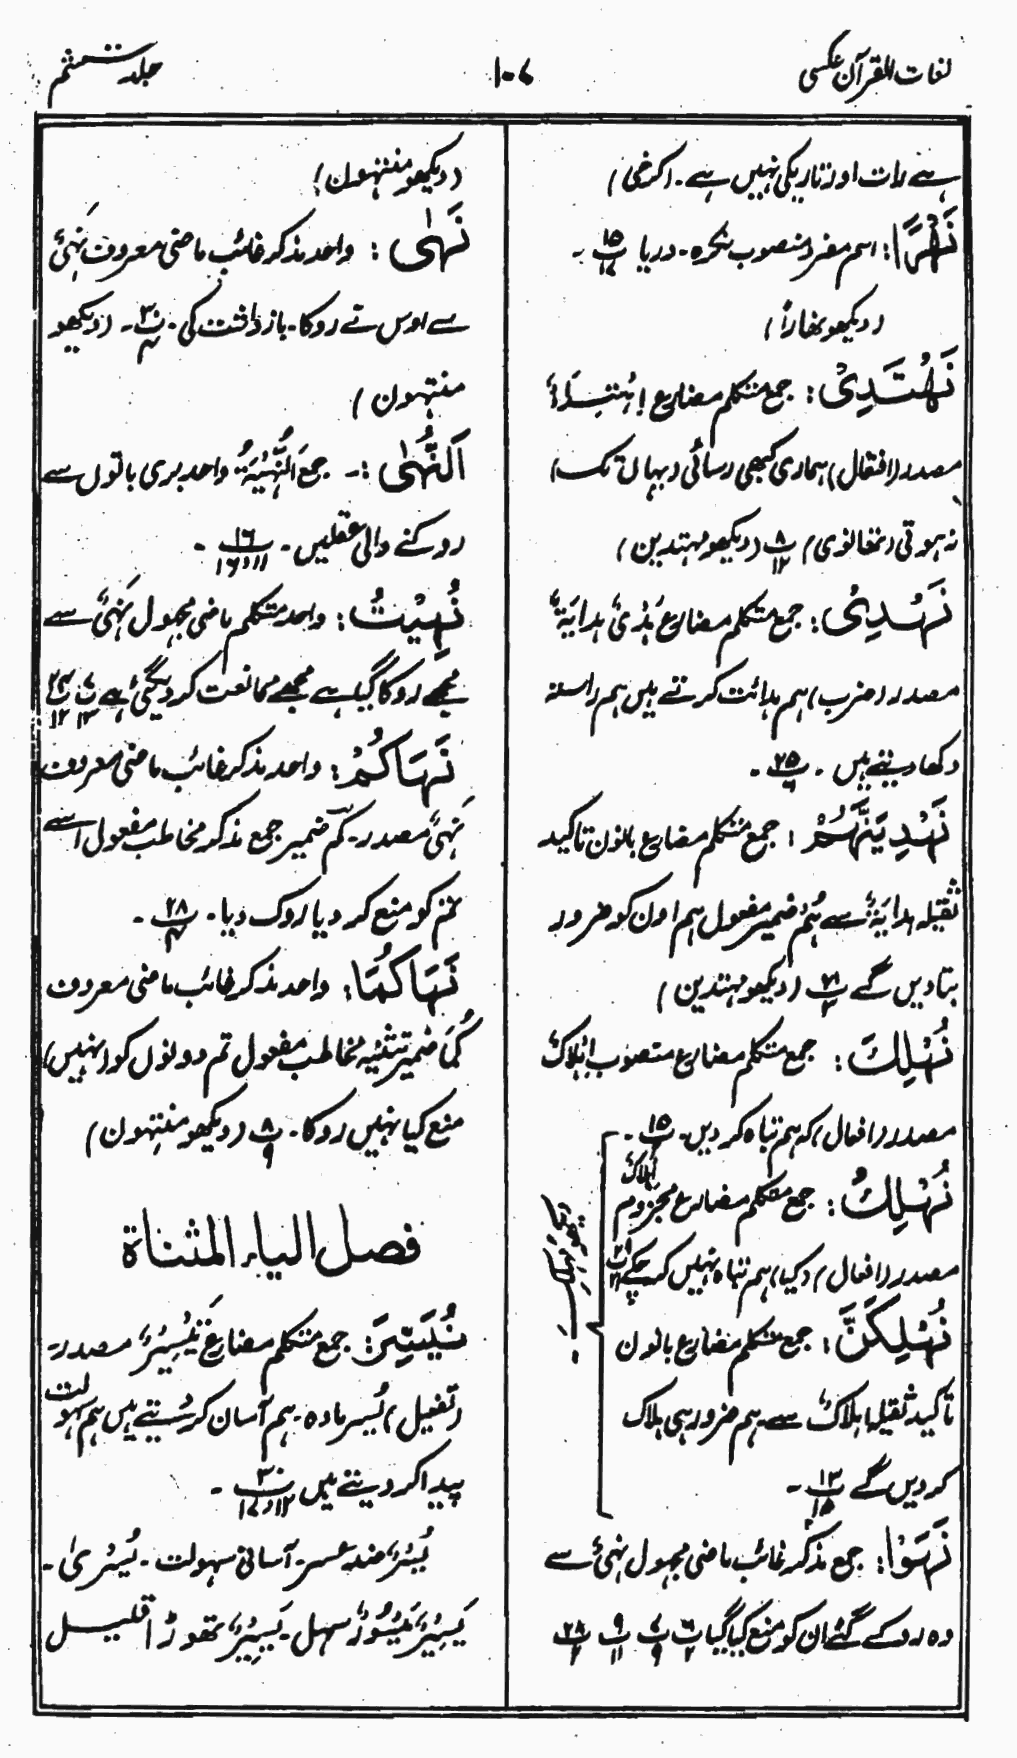 لغات القرآن عکسی
۱۰۷
جلد ششم
ہے رات اور تاریکی نہیں ہے۔ اکرخی)
نَهَرًا: اسم مفرد منصوب نکرہ۔ دریا پ ۱۵ ۱۷ ۔
(دیکھو نھارًا)
نَهْتَدِیْ: جمع متکلم مضارع اِهْتِدَاءٌ
مصدر (افتعال) ہماری کبھی رسائی (یہاں تک)
نہ ہوتی (تھانوی) پ ۸ ۱۲ (دیکھو مہتدین)
نَهْدِیْ: جمع متکلم مضارع هَدْیٌ هِدَایَةٌ
مصدر (ضرب) ہم ہدائت کرتے ہیں ہم راستہ
دکھا دیتے ہیں ۔ پ ۲۵ ۶ ۔
نَهْدِیَنَّهُمْ: جمع متکلم مضارع بانون تاکید
ثقیلہ هِدَایَةٌ سے هُمْ ضمیر مفعول ہم اون کو ضرور
بتا دیں گے پ ۲۱ ۳ (دیکھو مہتدین)
نُهْلِكَ: جمع متکلم مضارع منصوب اِهْلَاكٌ
مصدر (افعال) کہ ہم تباہ کردیں۔ پ ۱۵ ۲ ۔
نُهْلِكْ: جمع متکلم مضارع مجزوم اِهْلَاكٌ
مصدر (افعال) (کیا) ہم تباہ نہیں کرچکے پ ۲۹ ۲۱
نُهْلِكَنَّ: جمع متکلم مضارع بانون
تاکید ثقیلہ اِهْلَاكٌ سے ہم ضرور ہی ہلاک
کر دیں گے پ ۱۳ ۱۵ ۔
نُهُوْا: جمع مذکر غائب ماضی مجہول نَهْیٌ سے
وہ روکے گئے ان کو منع کیا گیا پ ۶ ۲ پ ۷ ۹ پ ۹ ۱۱ پ ۲۸ ۲
(دیکھو منتہون)
نَهٰی: واحد مذکر غائب ماضی معروف نَهْیٌ
سے اوس نے روکا۔ بازداشت کی۔ پ ۳۰ ۴ ۔ (دیکھو
منتہون)
اَلنُّهٰی:۔ جمع اَلنُّهْیَةُ واحد بری باتوں سے
روکنے والی عقلیں۔ پ ۱۶ ۱۱ و ۱۶ ۔
نُهِیْتُ: واحد متکلم ماضی مجہول نَهْیٌ سے
مجھے روکا گیا ہے مجھے ممانعت کردی گئی ہے پ ۷ ۱۳ پ ۲۴ ۱۲
نَهَاكُمْ: واحد مذکر غائب ماضی معروف
نَهْیٌ مصدر۔ كُمْ ضمیر جمع مذکر مخاطب مفعول اسے
تم کو منع کر دیا روک دیا۔ پ ۲۸ ۴ ۔
نَهَاكُمَا: واحد مذکر غائب ماضی معروف
كُمَا ضمیر تثنیہ مخاطب مفعول تم دونوں کو (نہیں)
منع کیا نہیں روکا۔ پ ۸ ۹ (دیکھو منتہون)
فصل الیاء المثناة
نُیَسِّرُ: جمع متکلم مضارع تَیْسِیْرٌ مصدر۔
(تفعیل) یُسر مادہ۔ ہم آسان کر دیتے ہیں ہم سہولت
پیدا کر دیتے ہیں پ ۳۰ ۱۲ و ۱۷ ۔
یُسْرٌ ضد عسر۔ آسانی سہولت ۔ یُسْرٰی۔
یَسِیْرٌ مَیْسُوْرٌ سہل۔ یَسِیْرٌ تھوڑا قلیل